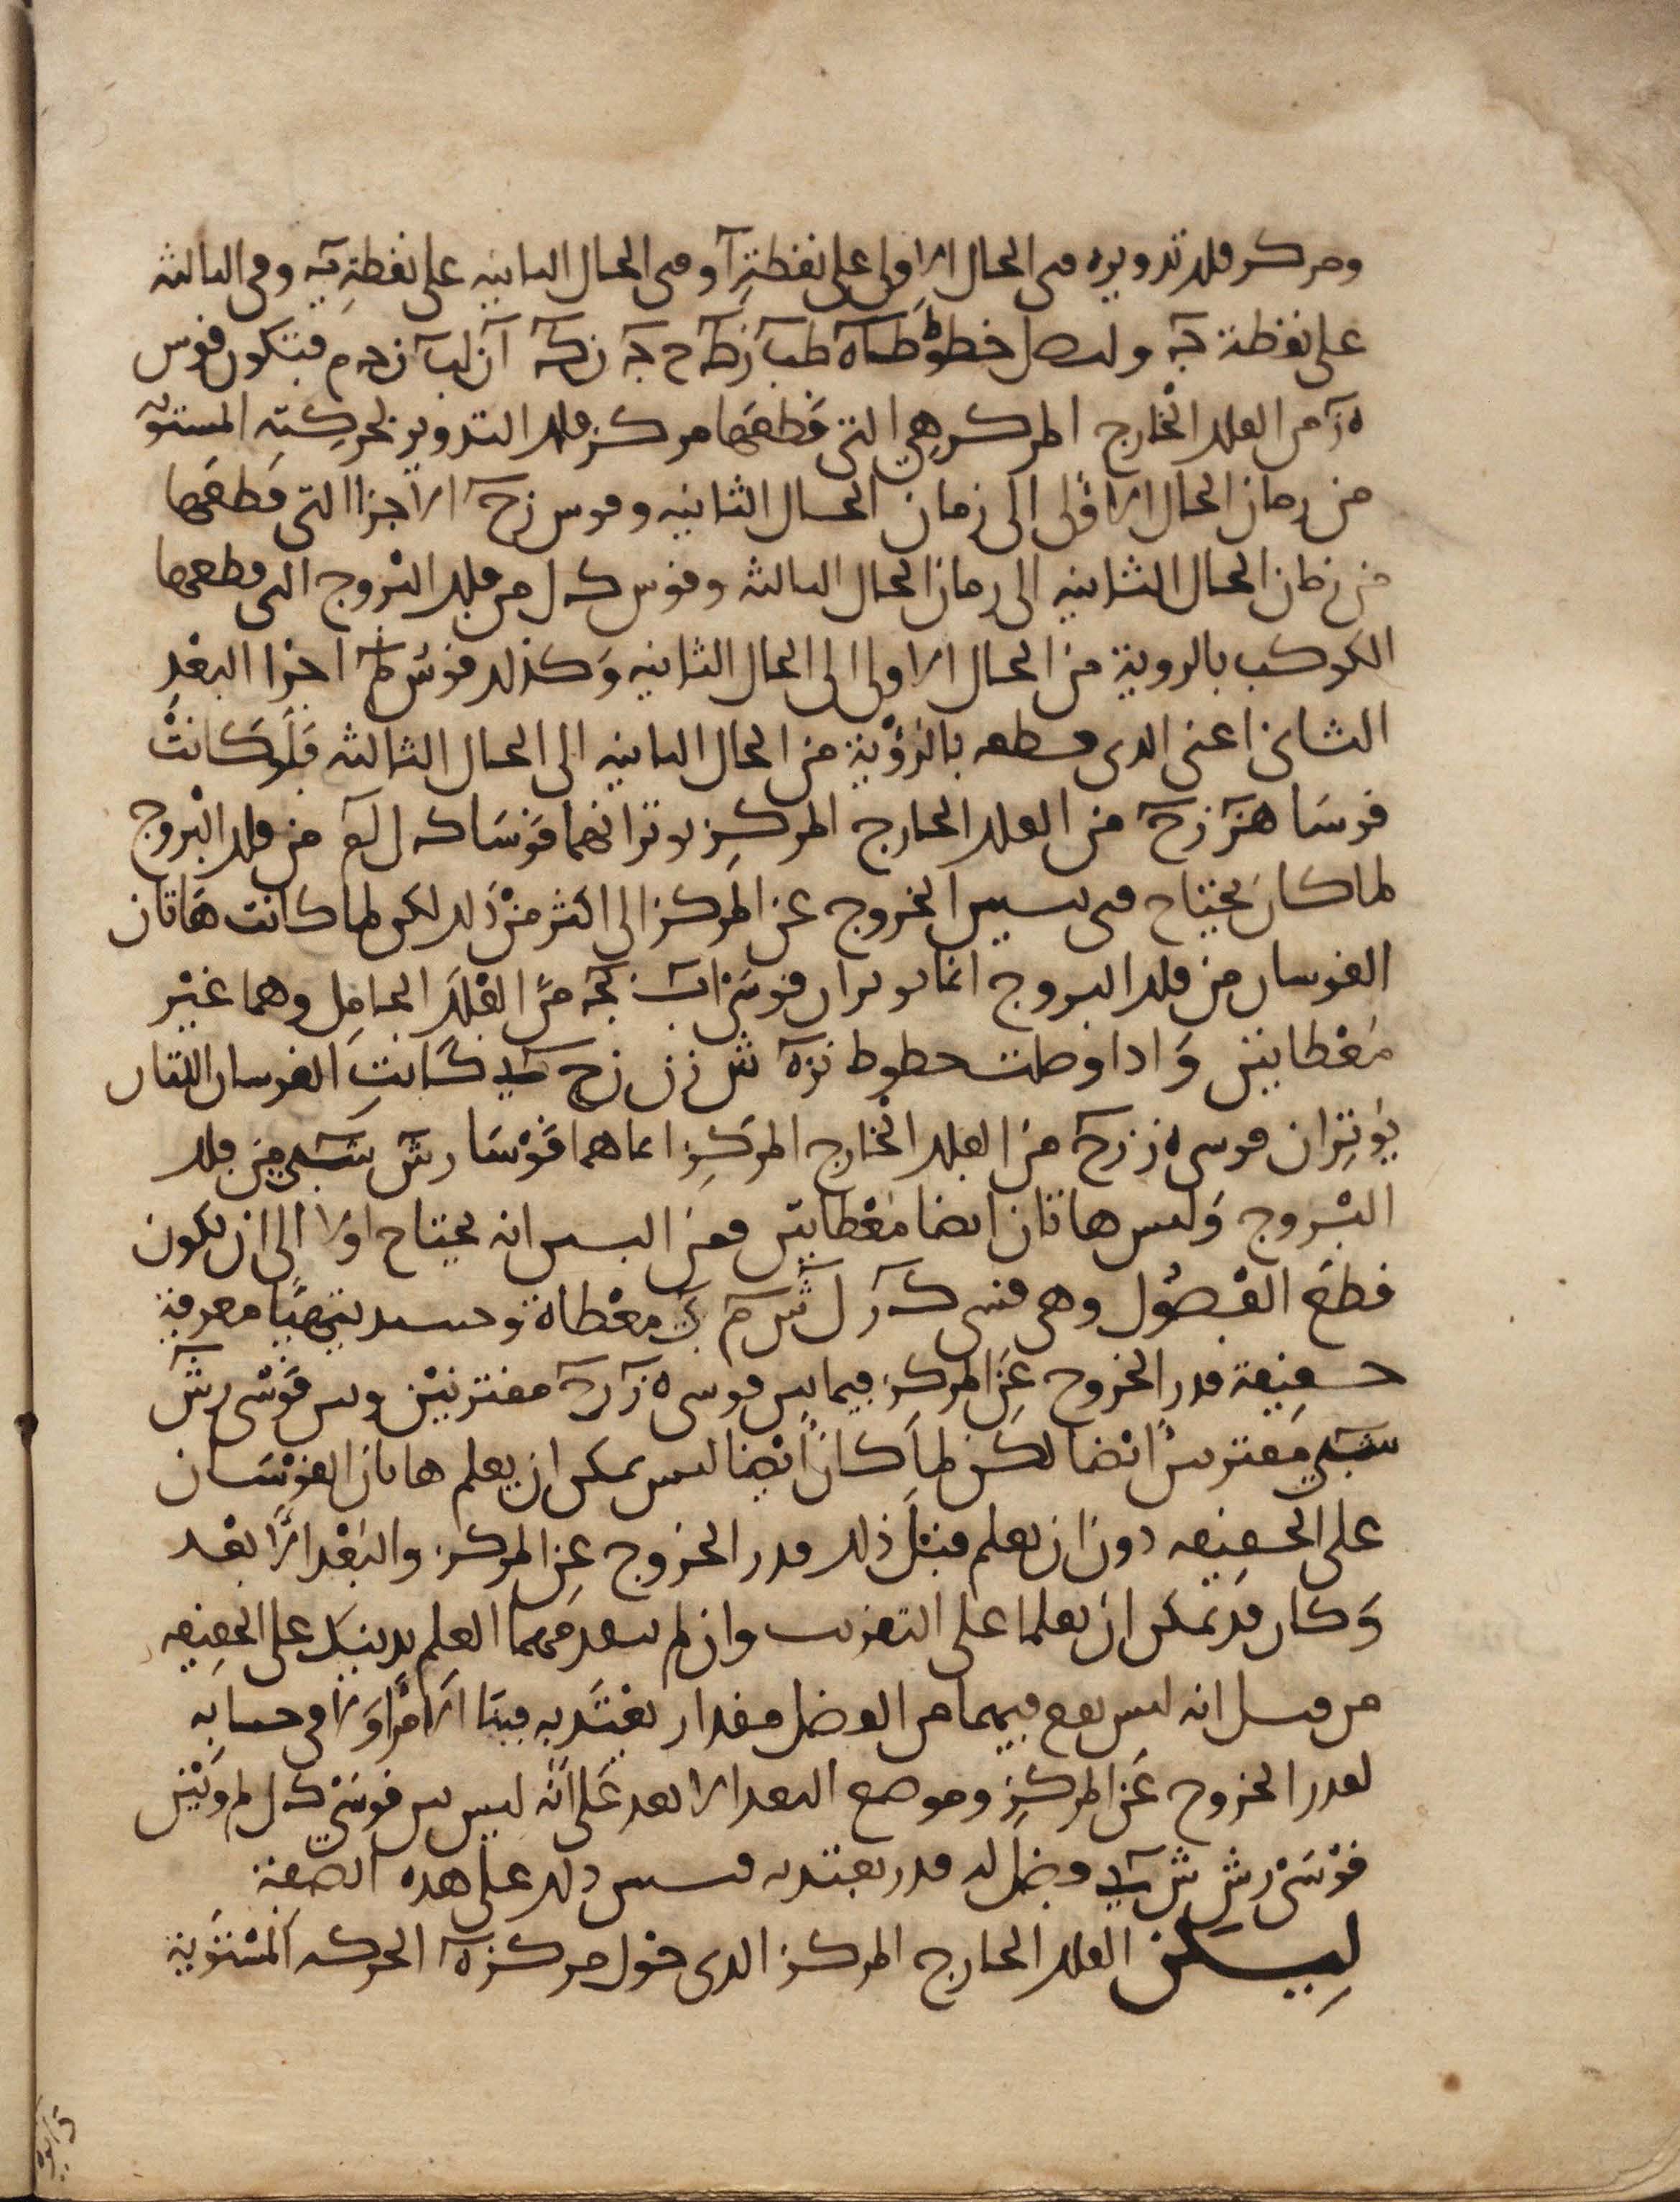 ومركز فلك تدويره في الحال الاولى على نقطة آ وفي الحال الثانيه على نقطة ب وفي الثالثة
على نقطة ج ولتصل خطوط طاه طب ز طح ج ن ك آ ن ل ب ن م ج فتكون قوس
ه ز من الفلك الخارج المركز هي التي قطعها مركز فلك التدوير بحركته المستوية
من زمان الحال الاولى الى زمان الحال الثانيه وقوس زح الاجزا التي قطعها
من زمان الحال الثانيه الى زمان الحال الثالثه وقوس ك ل من فلك البروج التي قطعها
الكوكب بالروية من الحال الاولى الى الحال الثانيه وكذلك قوس ل م اجزا البعد
الثانى اعنى الذي قطعه بالرؤية من الحال الثانيه الى الحال الثالثه فلو كانت
قوسا هز زح من الفلك الخارج المركز توترانهما قوسا ك ل ل م من فلك البروج
لما كان يحتاج في تبيين الخروج عن المركز الى اكثر من ذلك لكن لما كانت هاتان
القوسان من فلك البروج انما توتران قوسى اب بج من الفلك الحامل وهما غير
معطايتين واذا وصلت خطوط نره نش ز ن زح كانت القوسان اللتان
يوتران قوسى ه ز زح من الفلك الخارج المركز انما هما قوسا رش من فلك
البروج وليس هاتان ايضا معطايتين فمن البين انه يحتاج اولا الى ان تكون
قطع الفصول وهي قسى ك ر ل ش م معطاة وحينئذ يتهيا معرفة
حقيقة قدر الخروج عن المركز فيما بين قوسى ه ز زح مقترنين وبين قوسى رش
مقترنين ايضا لكن لما كان ايضا ليس يمكن ان يعلم هاتان القوسان
على الحقيقه دون ان يعلم قبل ذلك قدر الخروج عن المركز والبعد الابعد
وكان قد يمكن ان يعلما على التقريب وان لم يتقدمهما العلم بذينك على الحقيقه
من قبل انه ليس يقع فيهما من الفضل مقدار يعتد به فيتا الامر اولا في حسابه
لقدر الخروج عن المركز وموضع البعد الابعد على انه ليس بين قوسى ك ل لم وبين
قوسى رش فضل له قدر يعتد به فنبين ذلك على هذه الصفة
ليكن الفلك الخارج المركز الذي حول مركزه الحركه المستوية